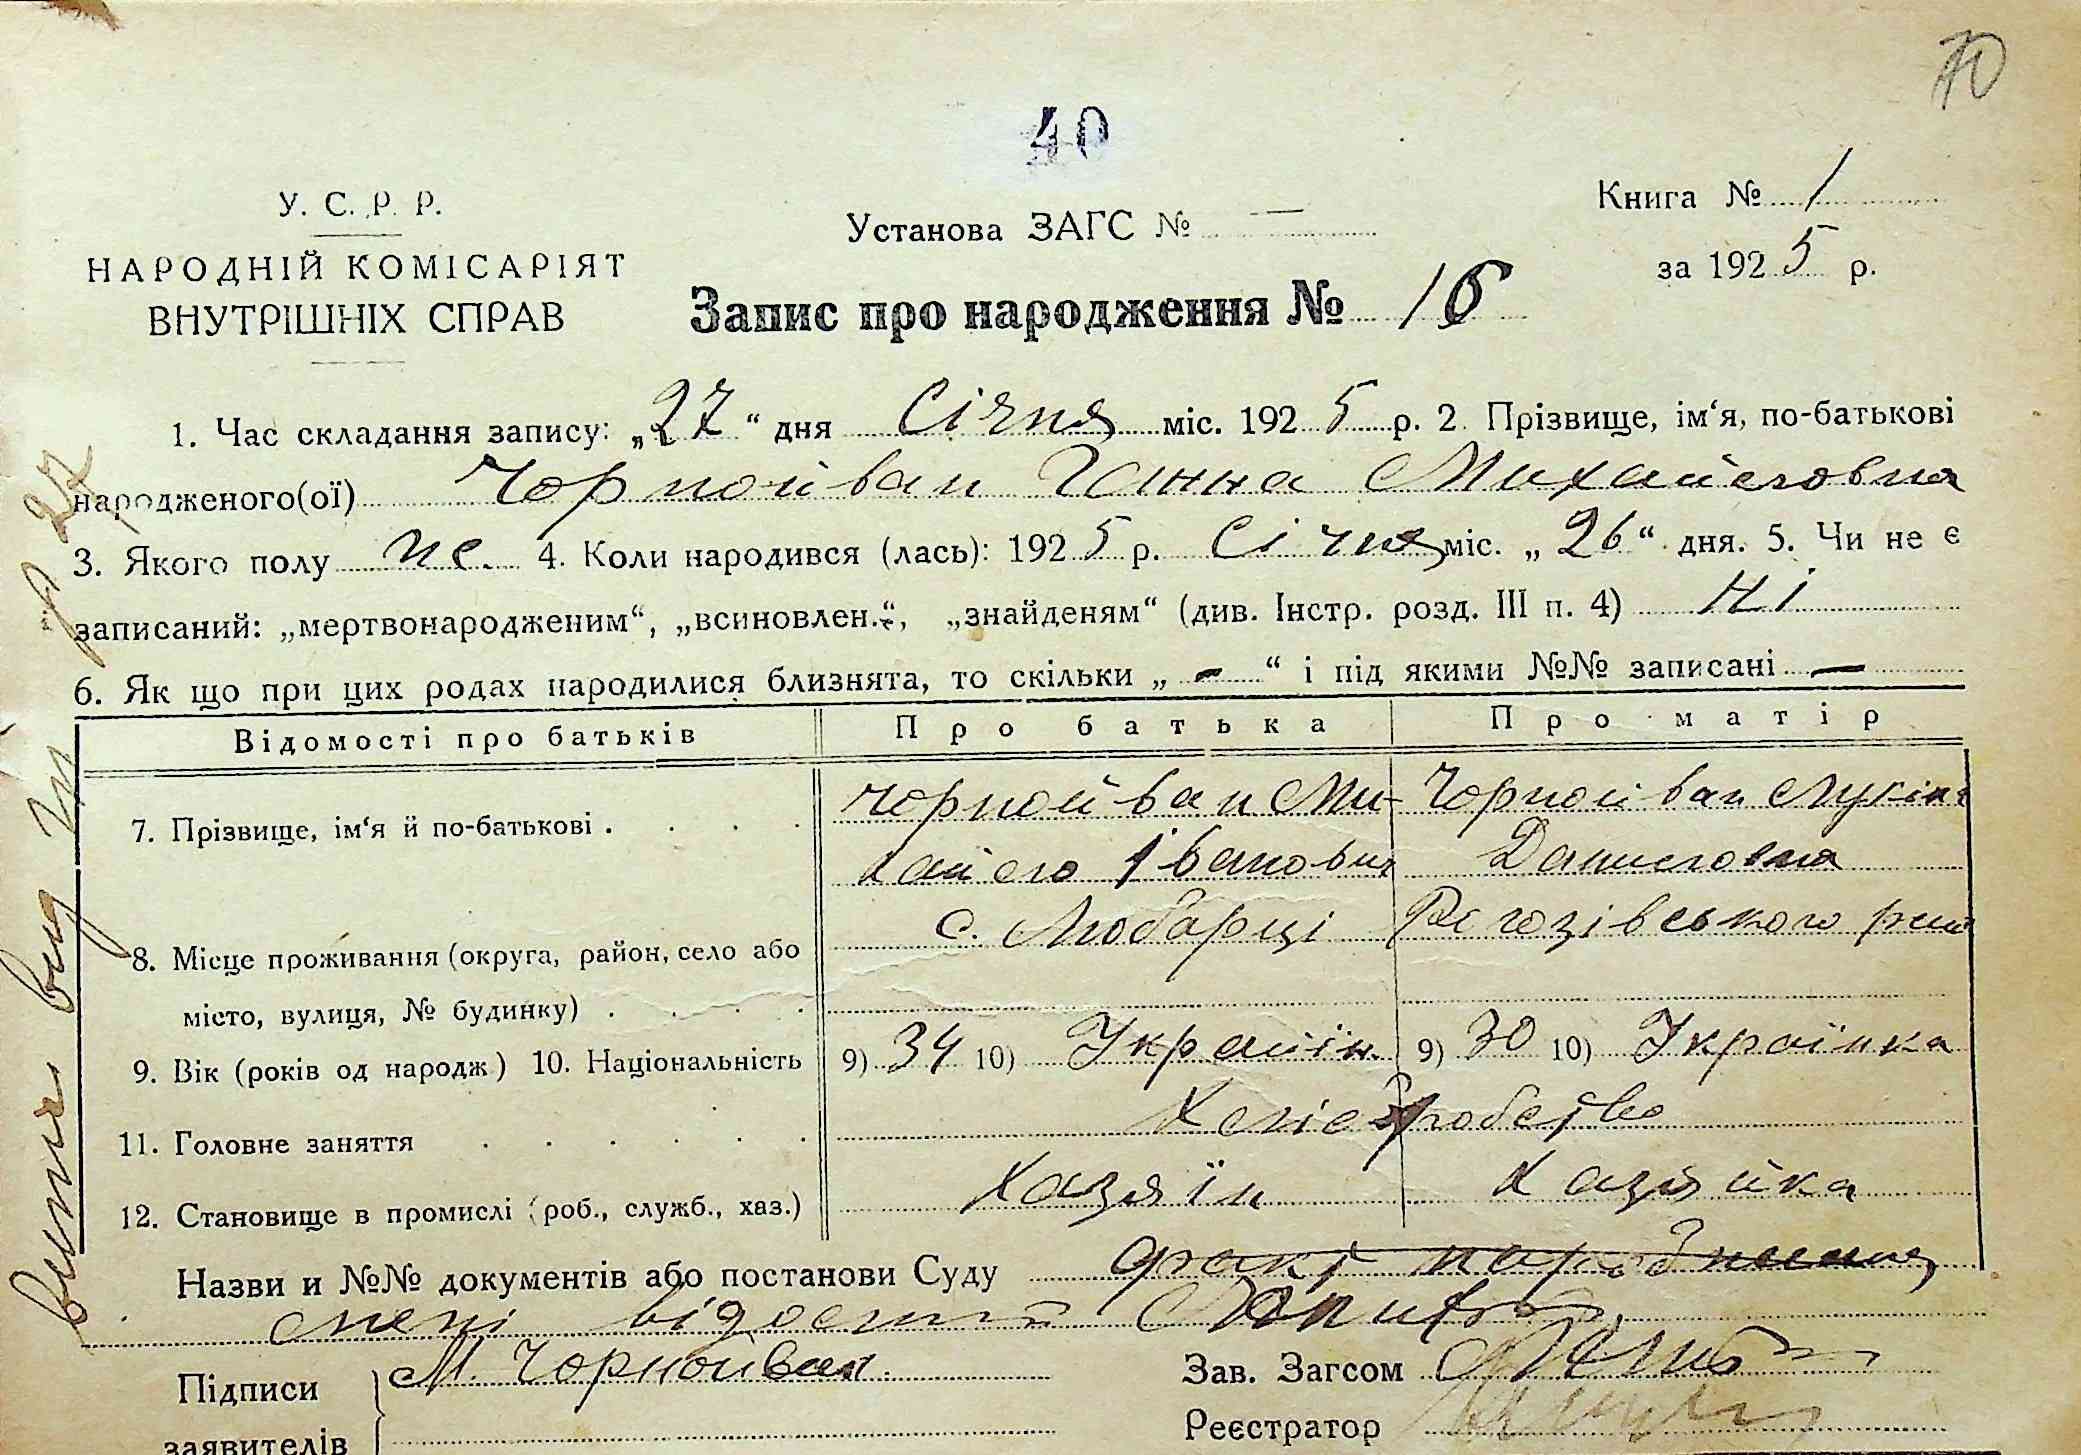 70
40
У. С. Р. Р.
НАРОДНІЙ КОМІСАРІЯТ
ВНУТРІШНІХ СПРАВ
Установа ЗАГС № —
Книга № 1
за 1925 р.
Запис про народження № 16
1. Час складання запису: „27“ дня Січня міс. 1925 р. 2. Прізвище, ім‘я, по-батькові
народженого(ої) Чорноіван Ганна Михайловна
3. Якого полу жс. 4. Коли народився (лась): 1925 р. Січня міс. „26“ дня. 5. Чи не є
записаний: „мертвонародженим“, „всиновлен.“, „знайденям“ (див. Інстр. розд. III п. 4) Ні
6. Як що при цих родах народилися близнята, то скільки „ - “ і під якими №№ записані —
Відомості про батьків Про батька Про матір
7. Прізвище, ім‘я й по-батькові . Чорноіван Ми- Чорноіван
хайло Іванович Даниловна
8. Місце проживання (округа, район, село або с. Любарці Рогозівського
місто, вулиця, № будинку) .
9. Вік (років од народж) 10. Національність 9) 34 10) Україїн. 9) 30 10) Українка
11. Головне заняття Хліборобство
12. Становище в промислі (роб., служб., хаз.) Хазяїн Хазяйка
Назви и №№ документів або постанови Суду факт народження
мені
Підписи М. Чорноіван Зав. Загсом
заявителів Реєстратор